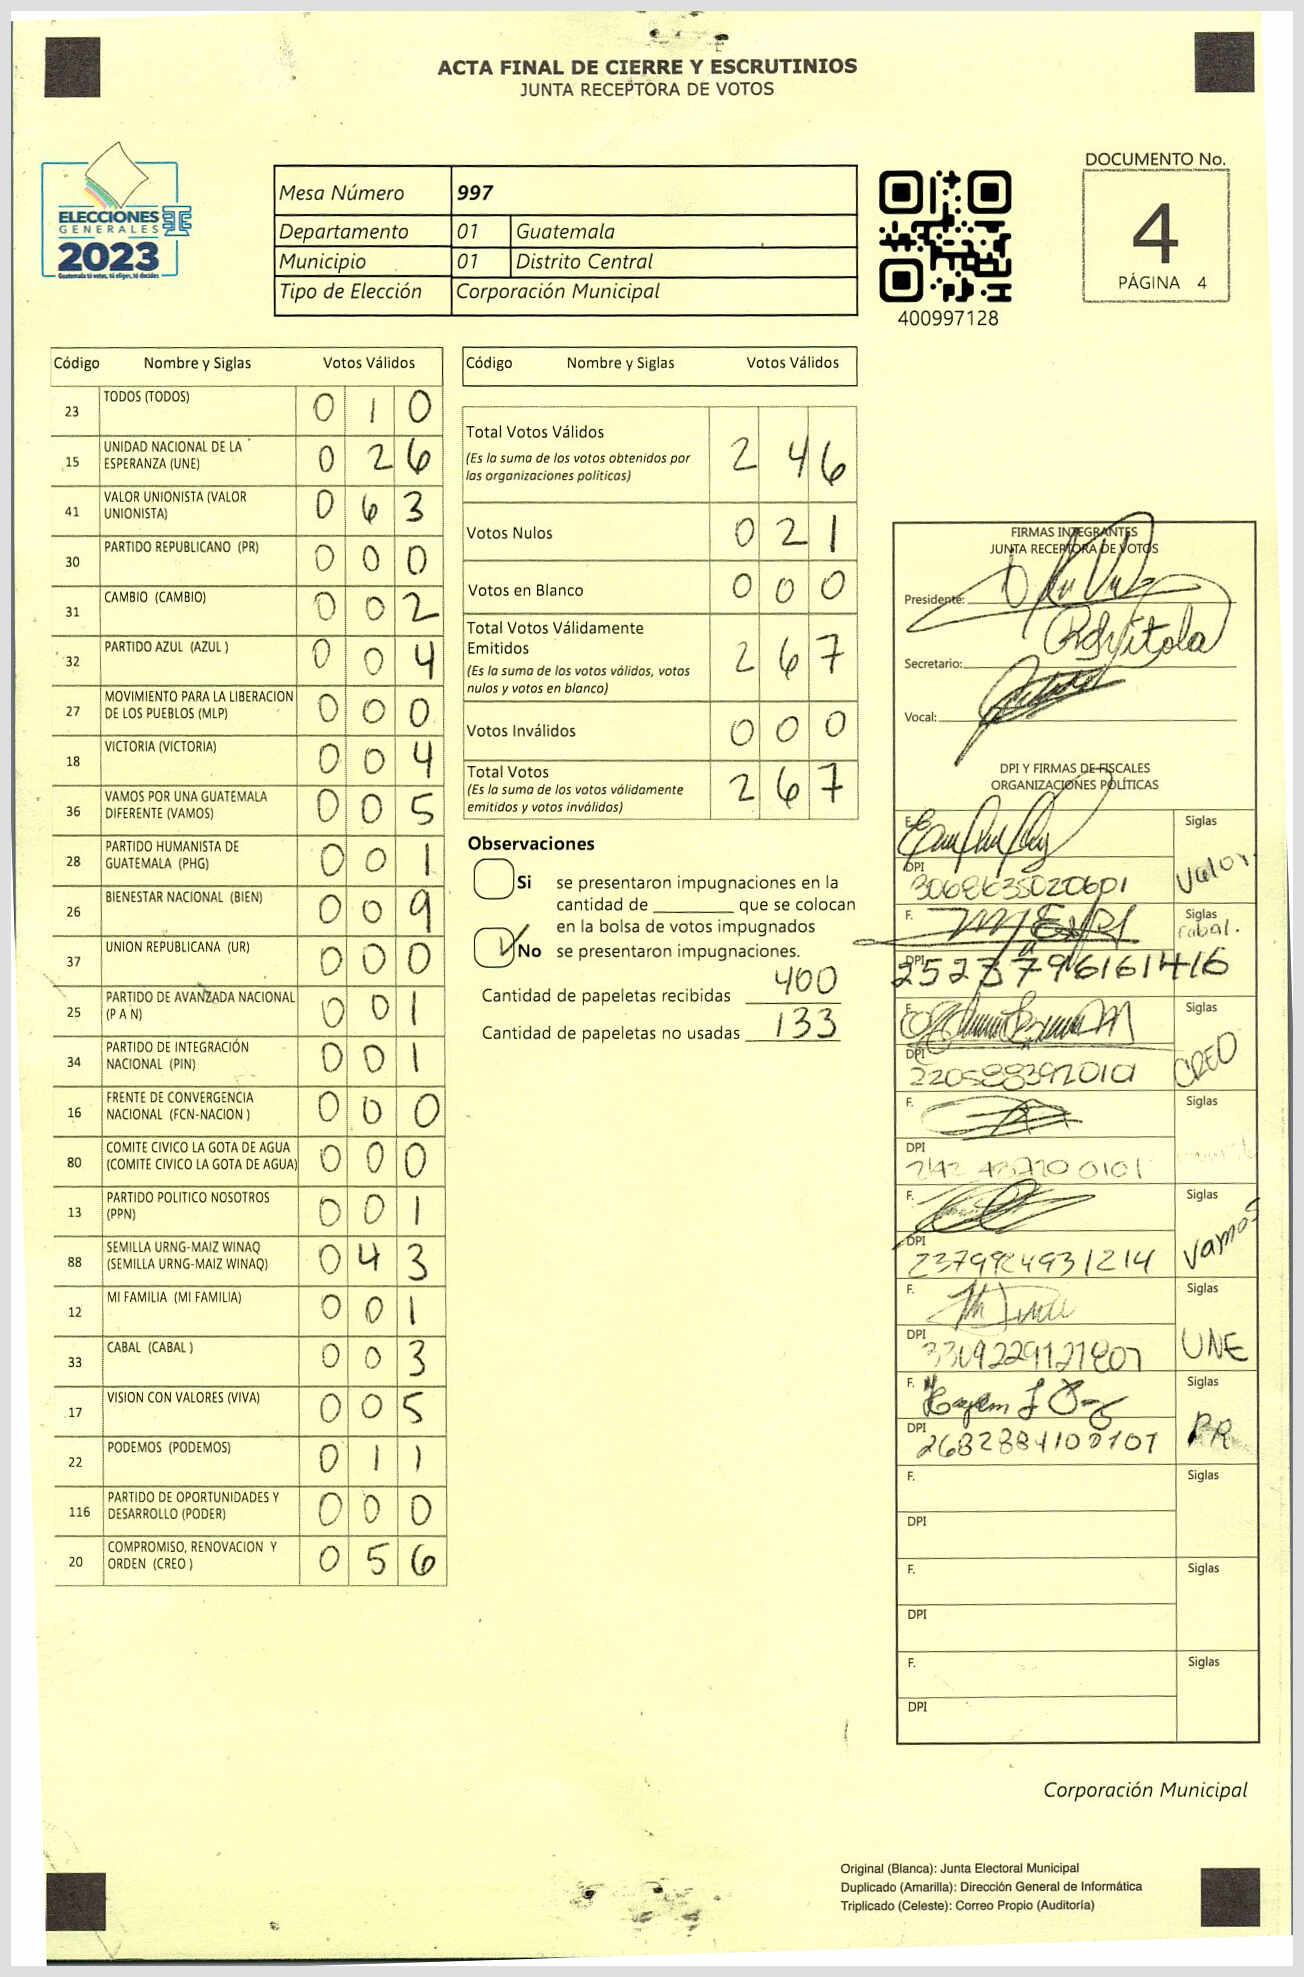 ACTA FINAL DE CIERRE Y ESCRUTINIOS
JUNTA RECEPTORA DE VOTOS
ELECCIONES
GENERALES
2023
Guatemala tú votas, tú eliges, tú decides
Mesa Número 997
Departamento 01 Guatemala
Municipio 01 Distrito Central
Tipo de Elección Corporación Municipal
400997128
DOCUMENTO No.
4
PÁGINA 4
Código Nombre y Siglas Votos Válidos
23 TODOS (TODOS) 0 1 0
15 UNIDAD NACIONAL DE LA ESPERANZA (UNE) 0 2 6
41 VALOR UNIONISTA (VALOR UNIONISTA) 0 6 3
30 PARTIDO REPUBLICANO (PR) 0 0 0
31 CAMBIO (CAMBIO) 0 0 2
32 PARTIDO AZUL (AZUL ) 0 0 4
27 MOVIMIENTO PARA LA LIBERACION DE LOS PUEBLOS (MLP) 0 0 0
18 VICTORIA (VICTORIA) 0 0 4
36 VAMOS POR UNA GUATEMALA DIFERENTE (VAMOS) 0 0 5
28 PARTIDO HUMANISTA DE GUATEMALA (PHG) 0 0 1
26 BIENESTAR NACIONAL (BIEN) 0 0 9
37 UNION REPUBLICANA (UR) 0 0 0
25 PARTIDO DE AVANZADA NACIONAL (P A N) 0 0 1
34 PARTIDO DE INTEGRACIÓN NACIONAL (PIN) 0 0 1
16 FRENTE DE CONVERGENCIA NACIONAL (FCN-NACION ) 0 0 0
80 COMITE CIVICO LA GOTA DE AGUA (COMITE CIVICO LA GOTA DE AGUA) 0 0 0
13 PARTIDO POLITICO NOSOTROS (PPN) 0 0 1
88 SEMILLA URNG-MAIZ WINAQ (SEMILLA URNG-MAIZ WINAQ) 0 4 3
12 MI FAMILIA (MI FAMILIA) 0 0 1
33 CABAL (CABAL ) 0 0 3
17 VISION CON VALORES (VIVA) 0 0 5
22 PODEMOS (PODEMOS) 0 1 1
116 PARTIDO DE OPORTUNIDADES Y DESARROLLO (PODER) 0 0 0
20 COMPROMISO, RENOVACION Y ORDEN (CREO ) 0 5 6
Código Nombre y Siglas Votos Válidos
Total Votos Válidos 2 4 6
(Es la suma de los votos obtenidos por
las organizaciones políticas)
Votos Nulos 0 2 1
Votos en Blanco 0 0 0
Total Votos Válidamente
Emitidos 2 6 7
(Es la suma de los votos válidos, votos
nulos y votos en blanco)
Votos Inválidos 0 0 0
Total Votos 2 6 7
(Es la suma de los votos válidamente
emitidos y votos inválidos)
Observaciones
Si se presentaron impugnaciones en la
cantidad de ________ que se colocan
en la bolsa de votos impugnados
No se presentaron impugnaciones.
Cantidad de papeletas recibidas 400
Cantidad de papeletas no usadas 133
FIRMAS INTEGRANTES
JUNTA RECEPTORA DE VOTOS
Presidente:
Secretario:
Vocal:
DPI Y FIRMAS DE FISCALES
ORGANIZACIONES POLÍTICAS
F. Siglas
DPI Valor
F. Siglas
DPI Cabal.
F. Siglas
DPI CREO
F. Siglas
DPI
F. Siglas
DPI Vamos
F. Siglas
DPI UNE
F. Siglas
DPI 2682884100101 PR
F. Siglas
DPI
F. Siglas
DPI
F. Siglas
DPI
Corporación Municipal
Original (Blanca): Junta Electoral Municipal
Duplicado (Amarilla): Dirección General de Informática
Triplicado (Celeste): Correo Propio (Auditoría)